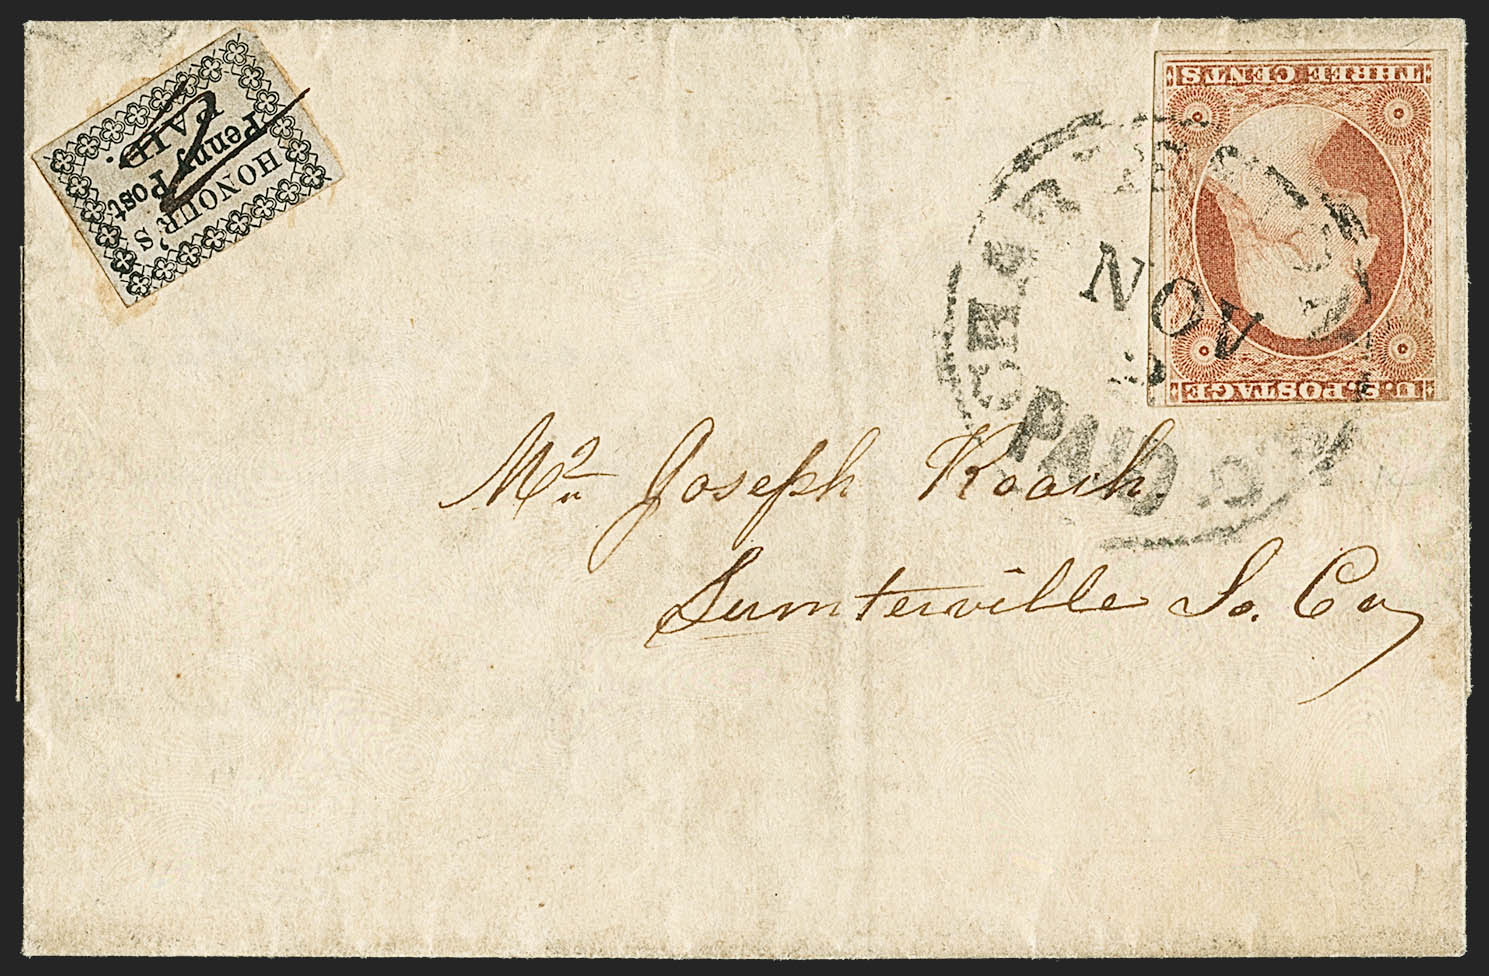 HONOUR'S
Penny Post
PAID.
U.S. POSTAGE
THREE CENTS
NOV
PAID
Mr Joseph Roach
Sumterville So. Ca